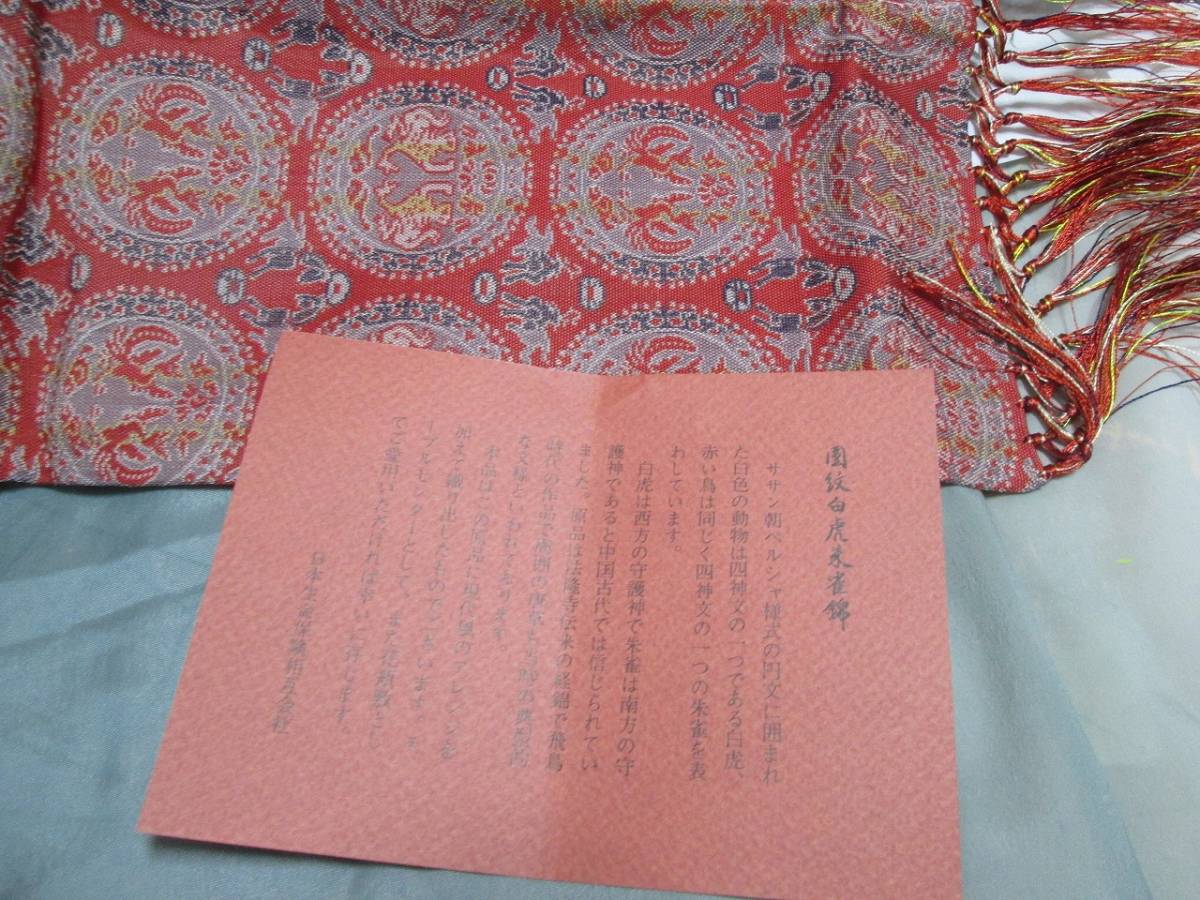 円紋白虎朱雀錦
ササン朝ペルシャ様式の円文に囲まれ
た白色の動物は四神文の一つである白虎、
赤い鳥は同じく四神文の一つの朱雀を表
わしています。
白虎は西方の守護神で朱雀は南方の守
護神であると中国古代では信じられてい
ました。原品は法隆寺伝来の経錦で飛鳥
時代の作品で
なく錦といわれております。
本品はこの原品に現代風のアレンジを
加えて織り出したものでございます。テ
ーブルセンターとして、また花瓶敷とし
てご愛用いただければ幸いに存じます。
日本生命保険相互会社